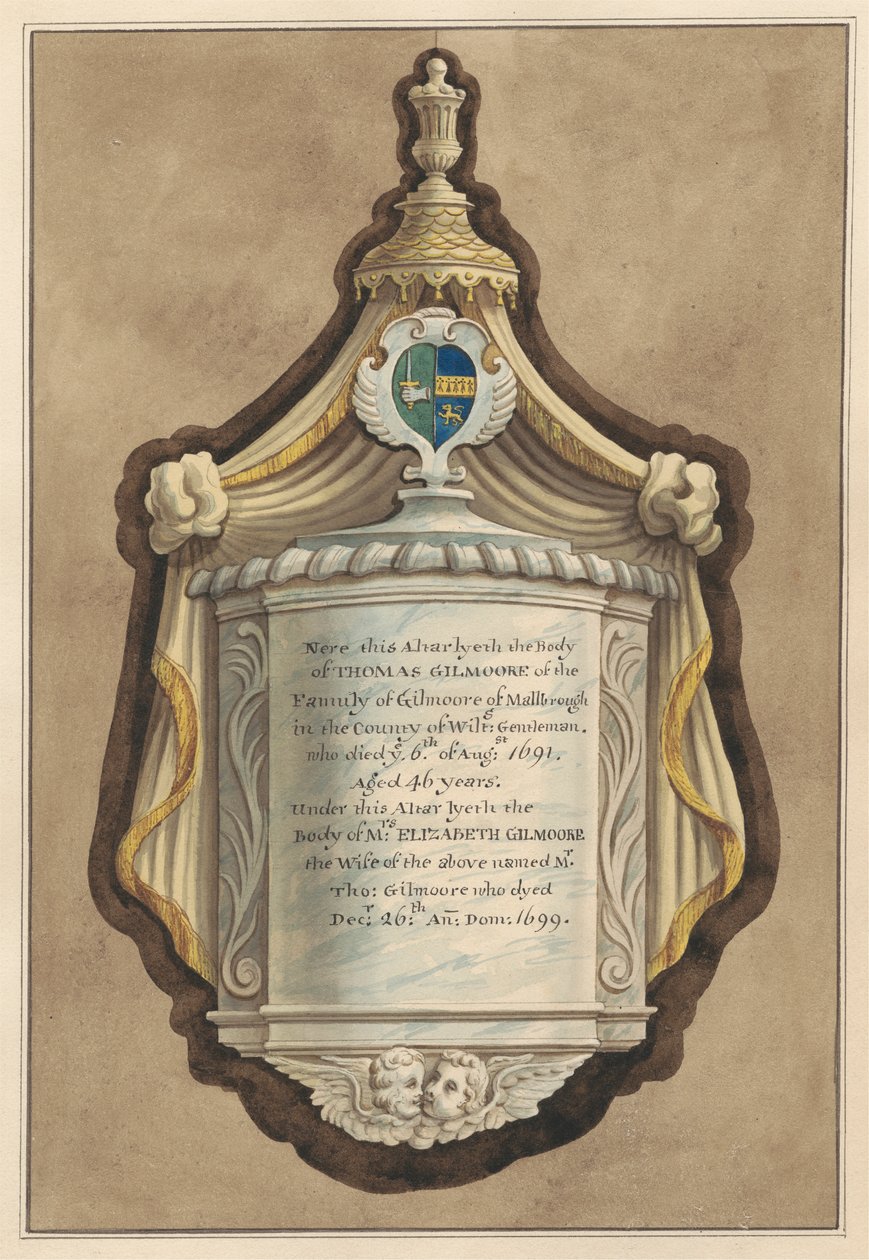 Nere this Altar lyeth the Body
of THOMAS GILMOORE of the
Family of Gilmoore of Mallbrough
in the County of Wilts: Gentleman.
who died yᵉ. 6.ᵗʰ of Augˢᵗ: 1691.
Aged 46 years.
Under this Altar lyeth the
Body of Mʳˢ: ELIZABETH GILMOORE
the Wife of the above named Mʳ.
Tho: Gilmoore who dyed
Decʳ: 26:ᵗʰ An̄: Dom: 1699.